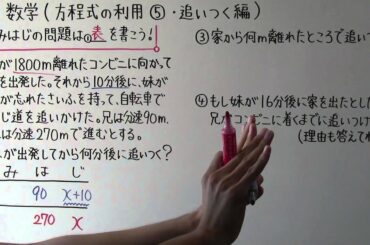 数学(方程式の利用⑤・追いつく編)
みはじの問題は①表を書こう!
が1800m離れたコンビニに向かって
を出発した。それから10分後に、妹が
が忘れたさいふを持って、自転車で
じ道を追いかけた。兄は分速90m、
は分速270mで進むとする。
が出発してから何分後に追いつく?
み は じ
90 x+10
270 x
③家から何m離れたところで追いつ
④もし妹が16分後に家を出たとした
兄がコンビニに着くまでに追いつけ
(理由も答えて